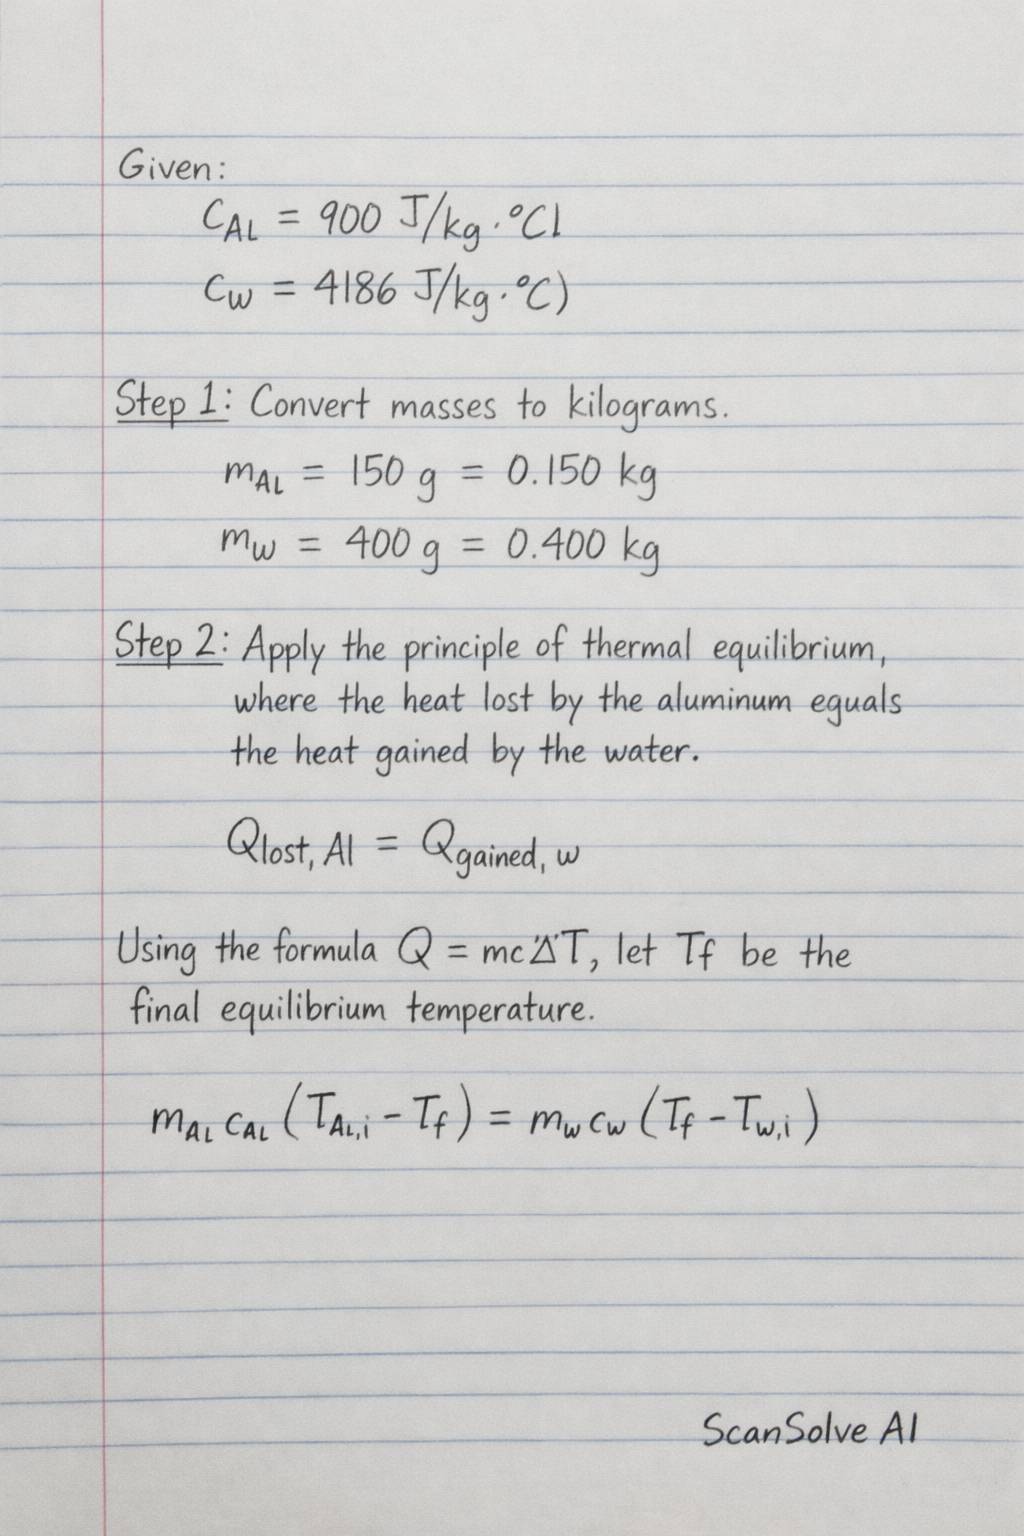 Given:
C_AL = 900 J/kg·°Cl
C_w = 4186 J/kg·°C)
Step 1: Convert masses to kilograms.
m_AL = 150 g = 0.150 kg
m_w = 400 g = 0.400 kg
Step 2: Apply the principle of thermal equilibrium,
where the heat lost by the aluminum equals
the heat gained by the water.
Q_lost, Al = Q_gained, w
Using the formula Q = mcΔT, let Tf be the
final equilibrium temperature.
m_AL c_AL (T_AL,i - T_f) = m_w c_w (T_f - T_w,i)
ScanSolve AI